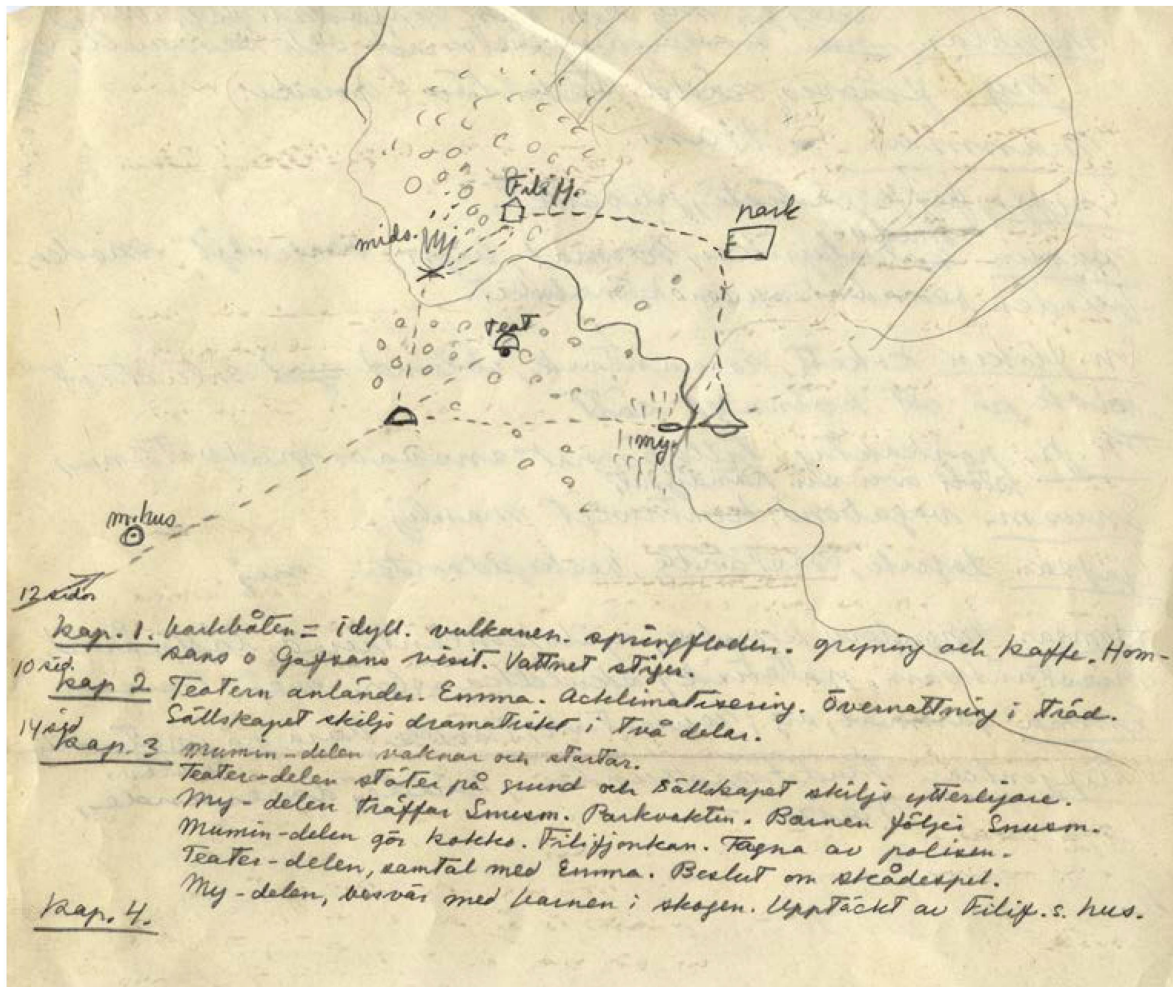 Filifj.
park
mids.
Teat
my.
m.hus
12 sidor
kap. 1. barkbåten = idyll. vulkanen. springfloden. gryning och kaffe. Hom-
sans o Gafsans visit. Vattnet stiger.
10 sid.
kap 2 Teatern anländer. Emma. Acklimatisering. Övernattning i träd.
Sällskapet skiljs dramatiskt i två delar.
14 sid
kap. 3 Mumin-delen vaknar och startar.
Teater-delen stöter på grund och sällskapet skiljs ytterligare.
My-delen träffar Snusm. Parkvakten. Barnen följer Snusm.
Mumin-delen gör kokko. Filifjonkan. Tagna av polisen.
Teater-delen, samtal med Emma. Beslut om skådespel.
My-delen, besvär med barnen i skogen. Upptäckt av Filifj.s. hus.
kap. 4.